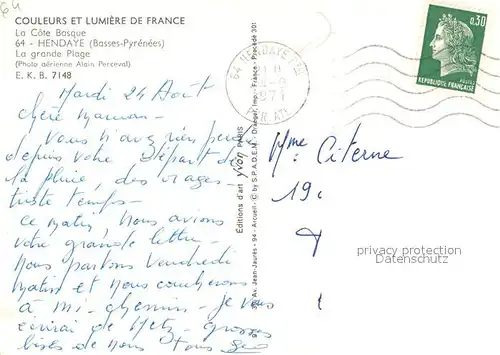 64
COULEURS ET LUMIÈRE DE FRANCE
La Côte Basque
64 - HENDAYE (Basses-Pyrénées)
La grande Plage
(Photo aérienne Alain Perceval)
E. K. B. 7148
Mardi 24 Août
chère maman -
Vous n'avez rien perdu
depuis votre Départ de
la pluie, des orages -
triste temps -
ce matin, nous avions
votre grande lettre -
nous partons Vendredi
matin et nous coucherons
à mi-chemin - je vous
écrirai de Metz - grosses
bises de nous tous
Editions d'art yvon PARIS
Av. Jean-Jaurès - 94 - Arcueil - © by S.P.A.D.E.M. - Draeger, Imp. France - Procédé 301
64 HENDAYE
1971
0,30
REPUBLIQUE FRANÇAISE
Mme Citerne
19
privacy protection
Datenschutz